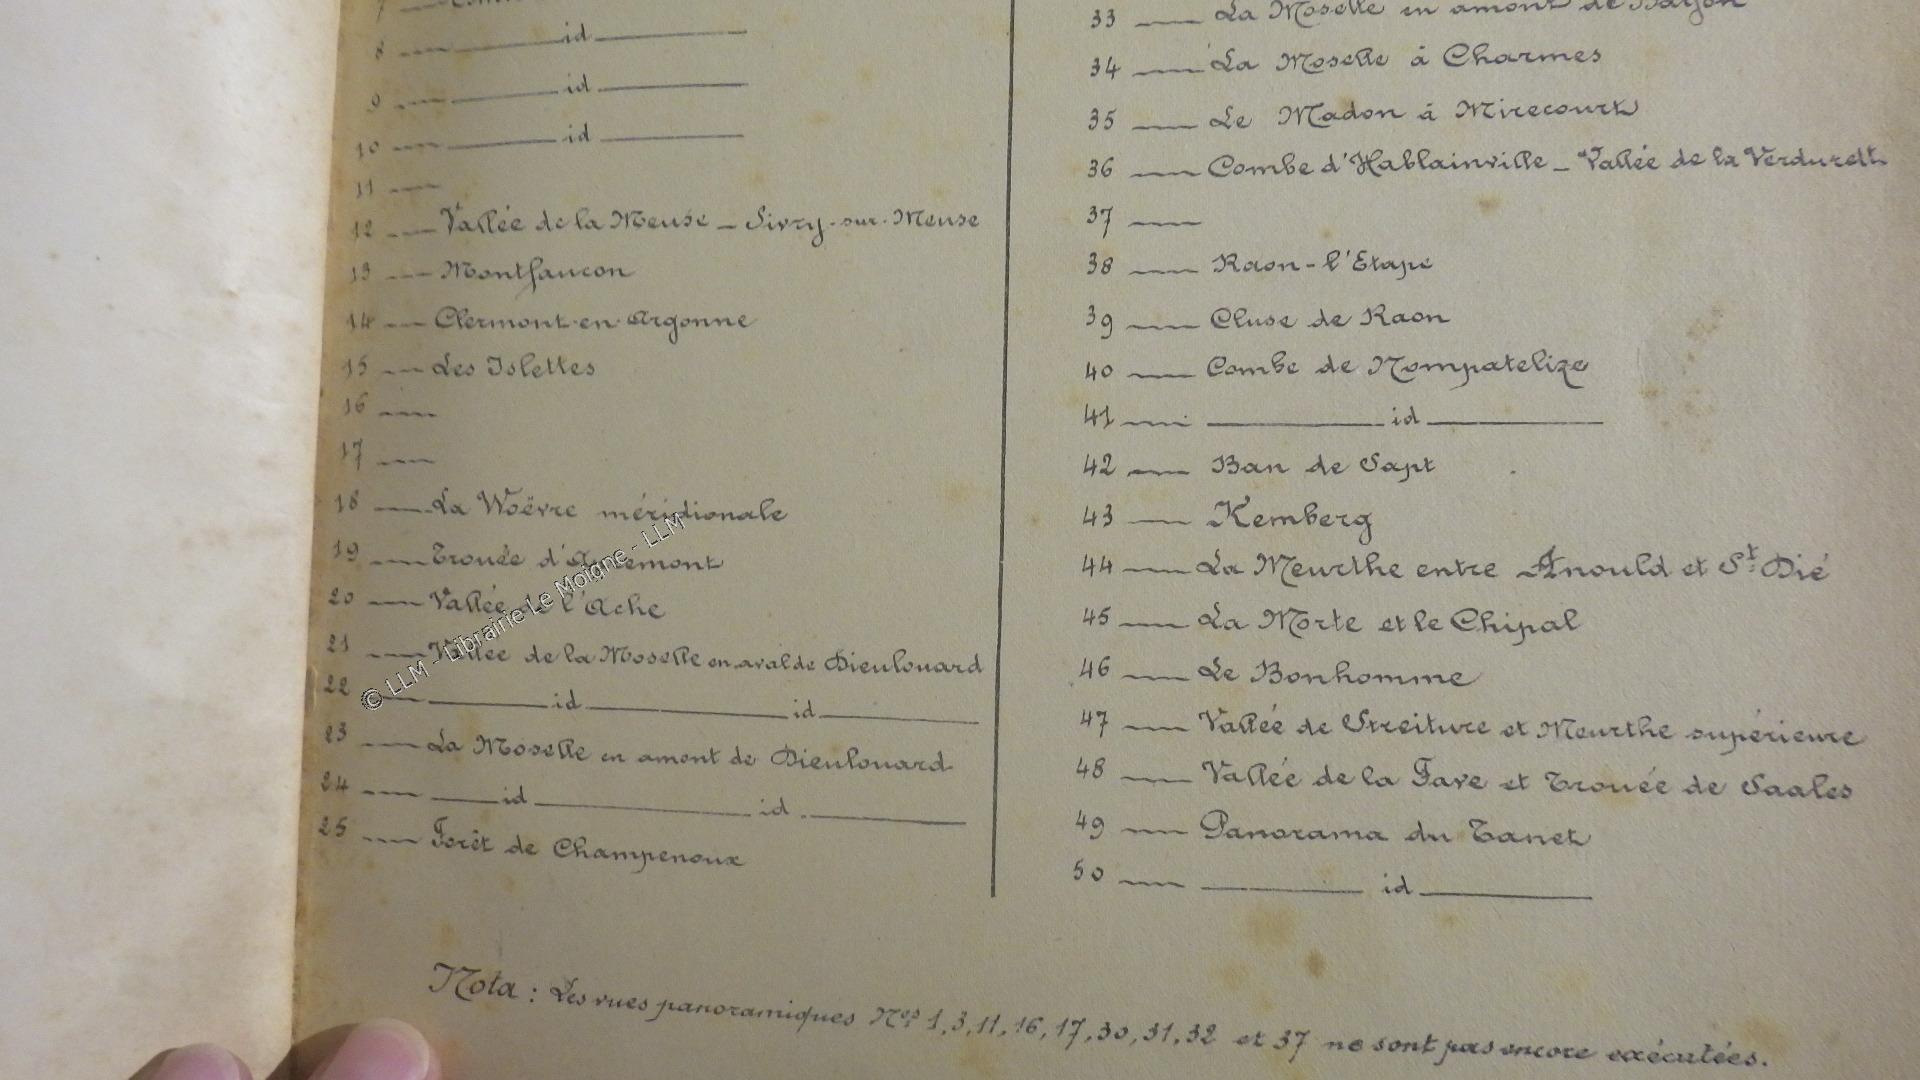 7
8 id
9 id
10 id
11
12 Vallée de la Meuse _ Sivry-sur-Meuse
13 Montfaucon
14 Clermont-en-Argonne
15 Les Islettes
16
17
18 La Woëvre méridionale
19 Trouée d'Apremont
20 Vallée de l'Ache
21 Vallée de la Moselle en aval de Dieulouard
22 id id
23 La Moselle en amont de Dieulouard
24 id id
25 Forêt de Champenoux
33 La Moselle en amont de Bayon
34 La Moselle à Charmes
35 Le Madon à Mirecourt
36 Combe d'Hablainville _ Vallée de la Verdurett
37
38 Raon-l'Etape
39 Cluse de Raon
40 Combe de Nompatelize
41 id
42 Ban de Sapt
43 Kemberg
44 La Meurthe entre Anould et St Dié
45 La Morte et le Chipal
46 Le Bonhomme
47 Vallée de Streiture et Meurthe supérieure
48 Vallée de la Fave et Trouée de Saales
49 Panorama du Tanet
50 id
Nota : Les vues panoramiques Nos 1, 3, 11, 16, 17, 30, 31, 32 et 37 ne sont pas encore exécutées.
© LLM - Librairie Le Moigne - LLM